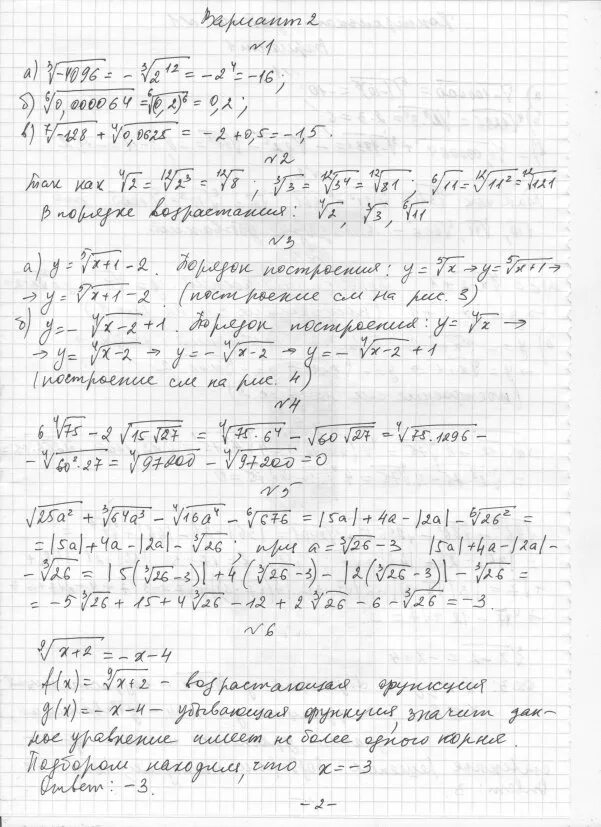 Вариант 2
№1
а) ∛(-4096) = -∛(2¹²) = -2⁴ = -16;
б) ⁶√(0,000064) = ⁶√((0,2)⁶) = 0,2;
в) ⁷√(-128) + ⁴√(0,0625) = -2 + 0,5 = -1,5.
№2
Так как ⁴√2 = ¹²√(2³) = ¹²√8; ∛3 = ¹²√(3⁴) = ¹²√81; ⁶√11 = ¹²√(11²) = ¹²√121
В порядке возрастания: ⁴√2, ∛3, ⁶√11
№3
а) y = ⁵√(x+1) - 2. Порядок построения: y = ⁵√x → y = ⁵√(x+1) →
→ y = ⁵√(x+1) - 2. (построение см на рис. 3)
б) y = -⁴√(x-2) + 1. Порядок построения: y = ⁴√x →
→ y = ⁴√(x-2) → y = -⁴√(x-2) → y = -⁴√(x-2) + 1
(построение см на рис. 4)
№4
6⁴√75 - 2√(15√27) = ⁴√(75·6⁴) - √(60√27) = ⁴√(75·1296) -
- ⁴√(60²·27) = ⁴√97200 - ⁴√97200 = 0
№5
√(25a²) + ∛(64a³) - ⁴√(16a⁴) - ⁶√676 = |5a| + 4a - |2a| - ⁶√(26²) =
= |5a| + 4a - |2a| - ∛26; при a = ∛26 - 3 |5a| + 4a - |2a| -
- ∛26 = |5(∛26 - 3)| + 4(∛26 - 3) - |2(∛26 - 3)| - ∛26 =
= -5∛26 + 15 + 4∛26 - 12 + 2∛26 - 6 - ∛26 = -3.
№6
⁹√(x+2) = -x - 4
f(x) = ⁹√(x+2) - возрастающая функция
g(x) = -x - 4 - убывающая функция, значит дан-
ное уравнение имеет не более одного корня.
Подбором находим, что x = -3
Ответ: -3.
- 2 -